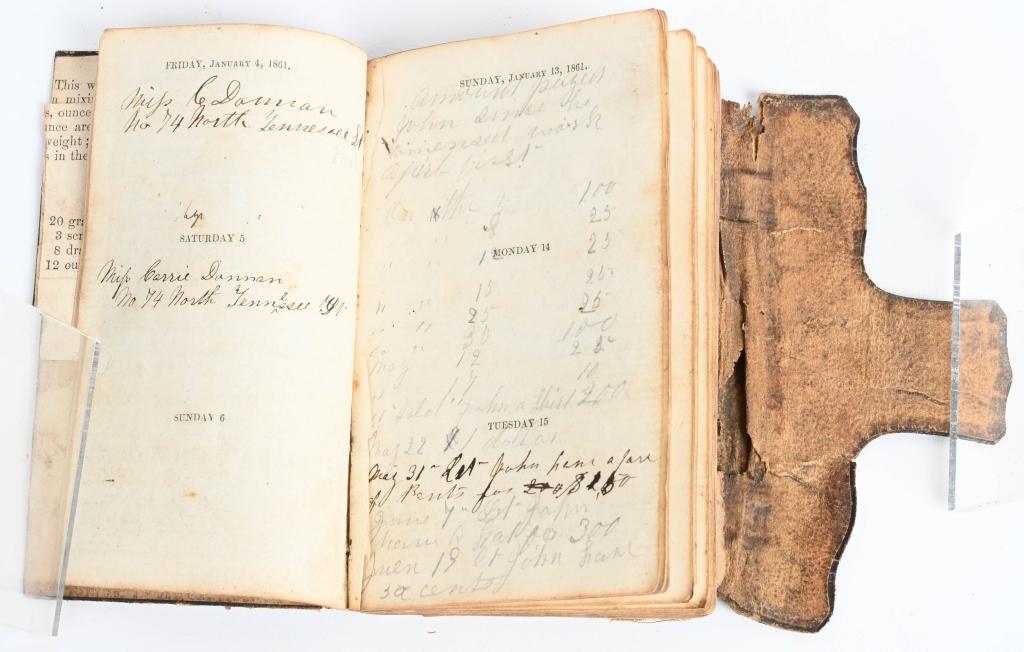 This w
n mixi
s, ounce
unce are
weight;
s in the
20 gra
3 scr
8 dra
12 ou
FRIDAY, JANUARY 4, 1861.
Miss C Donnan
No 74 North Tennessee St
SATURDAY 5
Miss Carrie Donnan
No 74 North Tennessee St
SUNDAY 6
SUNDAY, JANUARY 13, 1861.
Amount payed
John since he
comenced work
April first
On the " 100
" " 8 25
" " 12 25
MONDAY 14
" " 15 25
" " 25 25
" " 30 150
May 12 25
" " 10
John a Shirt 200
TUESDAY 15
May 22 1 dollar
May 31st Let John have a pare
of Pants for 200 $
June 7th Let John
have 300
Juen 19 Let John have
cents